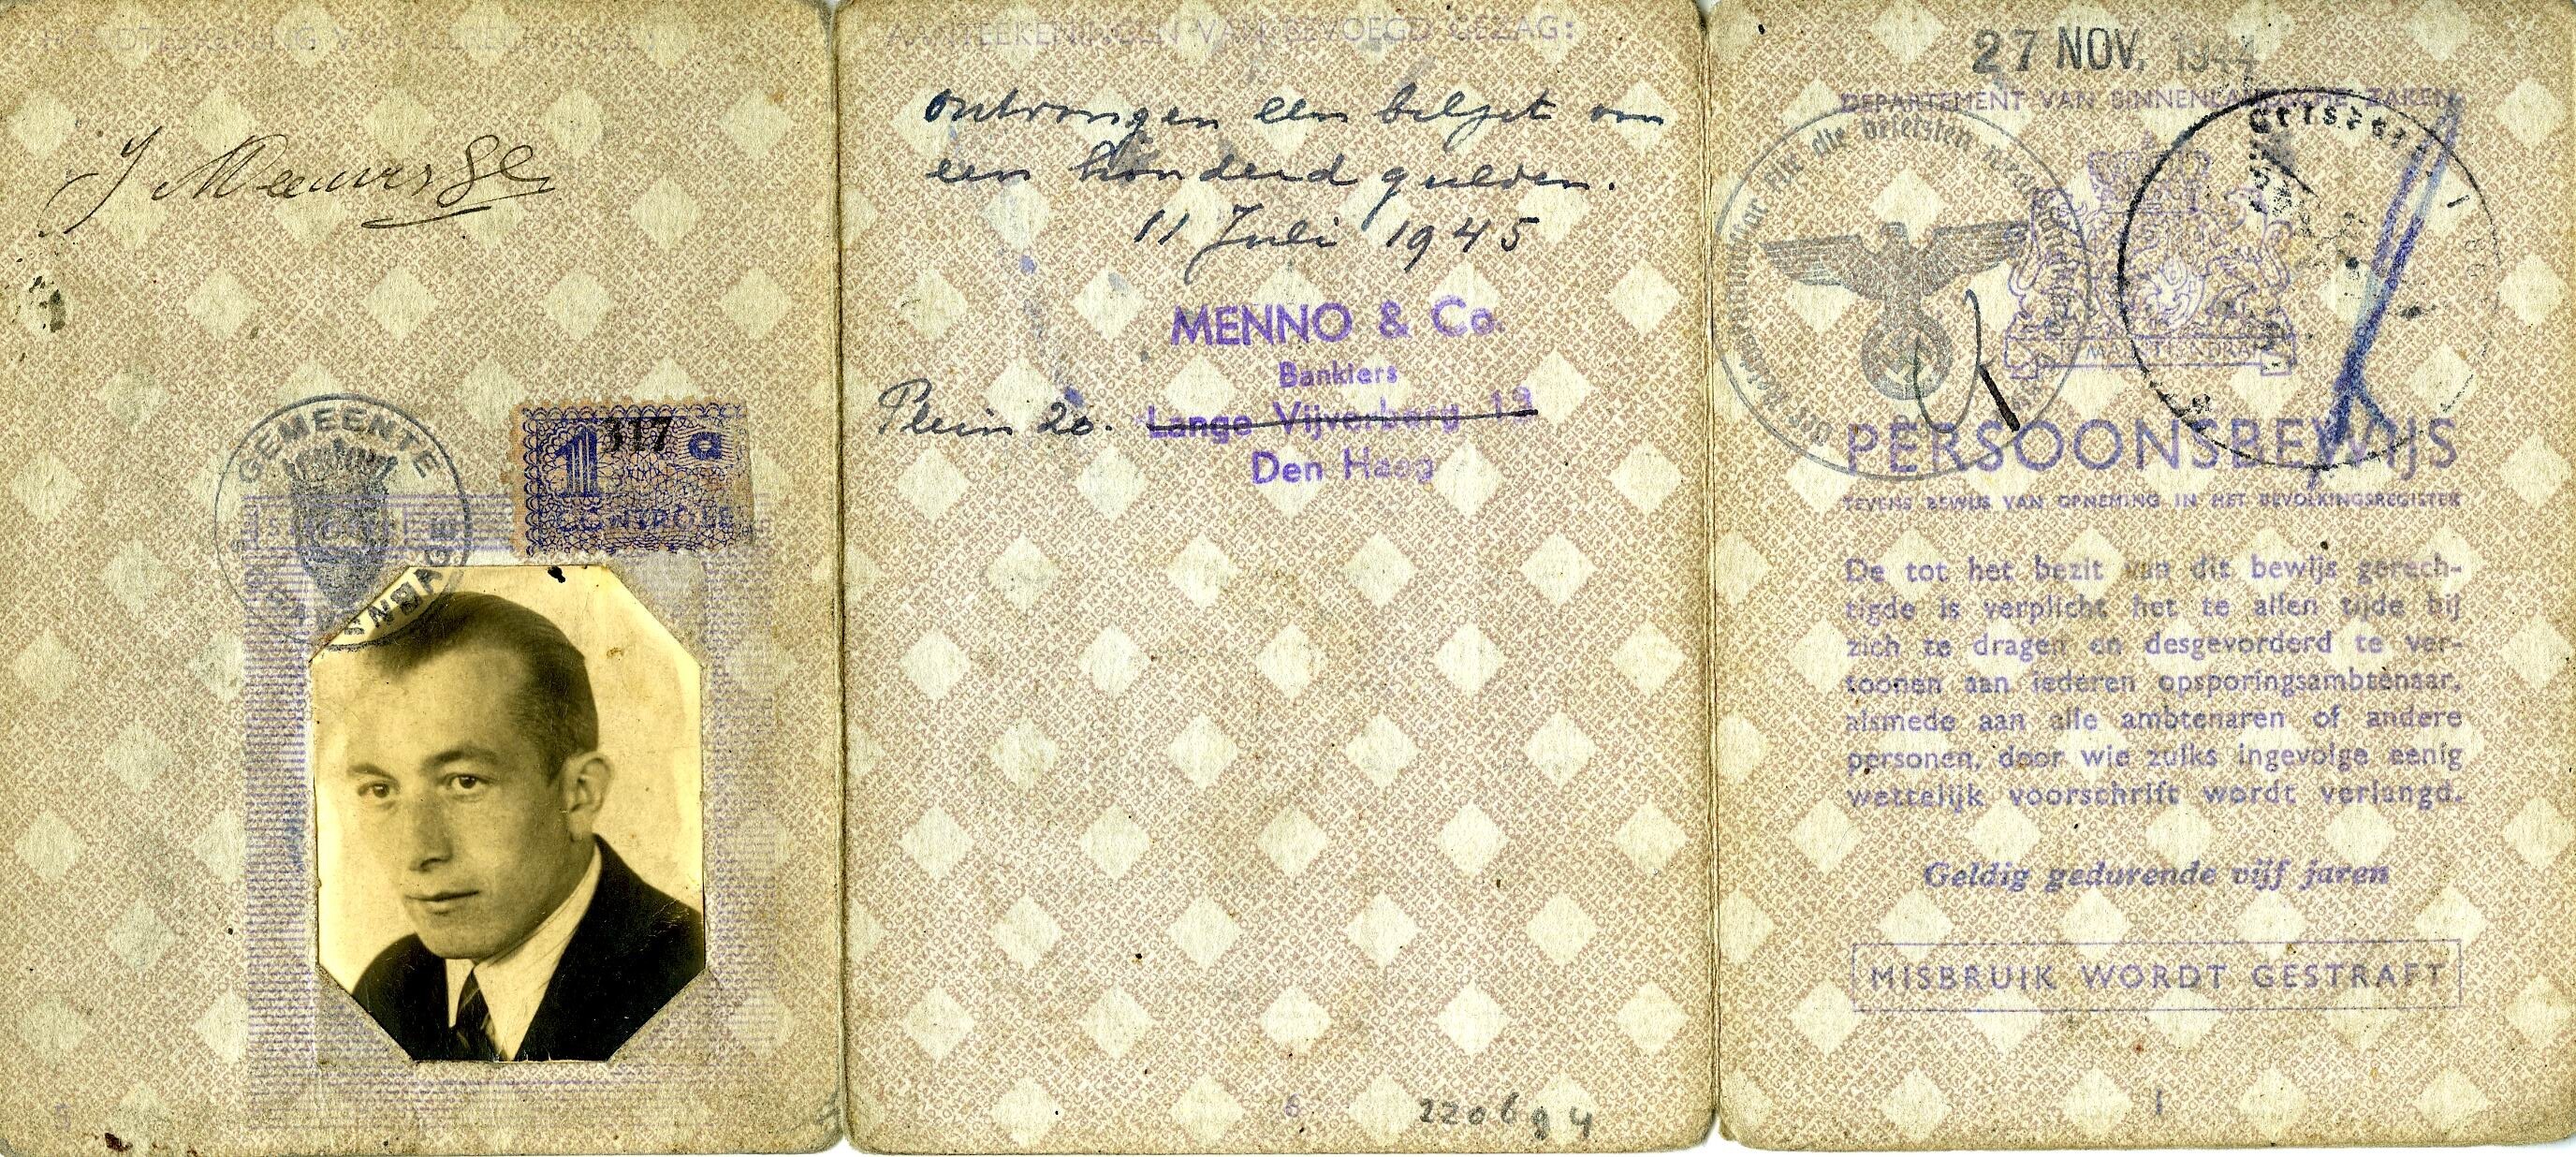 J Meeuwsse
GEMEENTE
'S GRAVENHAGE
1 G
317
CONTROLE
5
AANTEEKENINGEN VAN BEVOEGD GEZAG:
ontvangen een biljet van
een honderd gulden.
11 Juli 1945
MENNO & Co.
Bankiers
Plein 20. Lange Vijverberg 13
Den Haag
6
220694
27 NOV. 1944
DEPARTEMENT VAN BINNENLANDSCHE ZAKEN
für die besetzten
JE MAINTIENDRAI
PERSOONSBEWIJS
TEVENS BEWIJS VAN OPNEMING IN HET BEVOLKINGSREGISTER
De tot het bezit van dit bewijs gerech-
tigde is verplicht het te allen tijde bij
zich te dragen en desgevorderd te ver-
toonen aan iederen opsporingsambtenaar,
alsmede aan alle ambtenaren of andere
personen, door wie zulks ingevolge eenig
wettelijk voorschrift wordt verlangd.
Geldig gedurende vijf jaren
MISBRUIK WORDT GESTRAFT
1